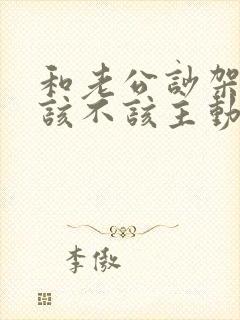 和老公訬架
該不該主動
李傲